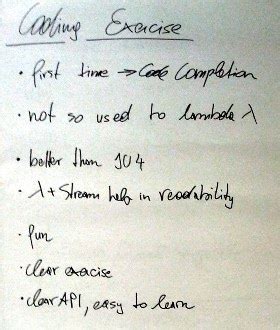 Coding Exercise
• first time → Code Completion
• not so used to lambda λ
• better than 104
• λ + Stream help in readability
• fun
• clear exacise
• clear API, easy to learn